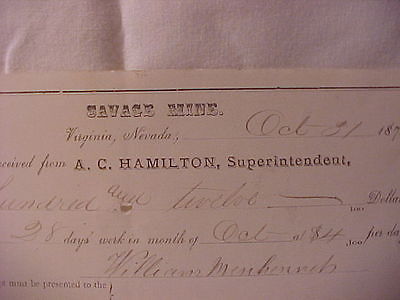 SAVAGE MINE.
Virginia, Nevada, Oct 31 187
eceived from A. C. HAMILTON, Superintendent,
hundred and twelve /100 Dolla
28 days' work in month of Oct at $4 /100 per da
William
t must be presented to the